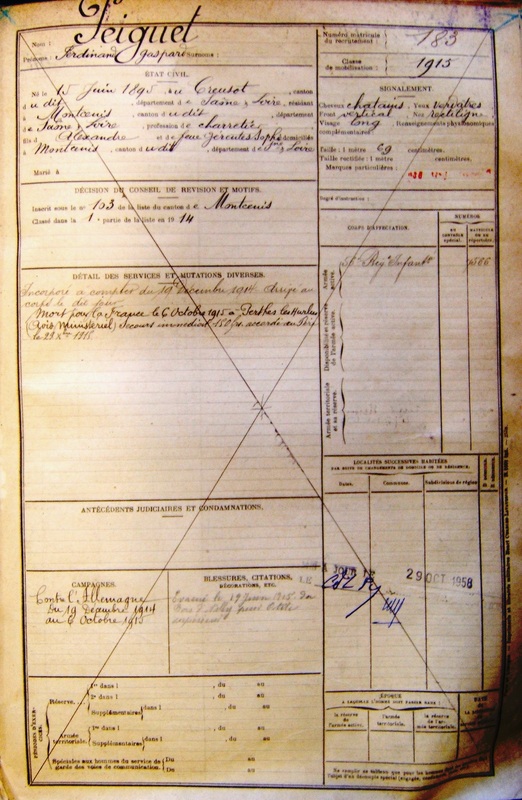 Nom : Seiguet
Prénoms : Ferdinand Gaspard Surnoms :
Numéro matricule
du recrutement : 183
Classe
de mobilisation : 1915
ÉTAT CIVIL.
Né le 15 Juin 1895, au Creusot, canton
du dit, département de Saône & Loire, résidant
à Montcenis, canton du dit, département
de Saône & Loire, profession de charretier
fils d'Alexandre et de domiciliés
à Montcenis, canton du dit, département de Sne & Loire
Marié à
SIGNALEMENT.
Cheveux chatains, Yeux verdatres
Front vertical, Nez rectiligne
Visage long, Renseignements physionomiques
complémentaires :
Taille : 1 mètre 69 centimètres.
Taille rectifiée : 1 mètre centimètres.
Marques particulières :
Degré d'instruction :
DÉCISION DU CONSEIL DE REVISION ET MOTIFS.
Inscrit sous le no 103 de la liste du canton de Montcenis
Classé dans la 1e partie de la liste en 1914
CORPS D'AFFECTATION.
NUMÉROS
Armée
active.
Régt Infanterie
Disponibilité et réserve
de l'armée active.
Armée territoriale
et sa réserve.
DÉTAIL DES SERVICES ET MUTATIONS DIVERSES.
Incorporé à compter du 19 Décembre 1914 Dirigé au
corps le dit jour
Mort pour la France le 6 Octobre 1915 à Perthes les Hurlus
(Avis Ministériel) Secours immédiat 150 frs accordé au Père
le 29 Xbre 1915
LOCALITÉS SUCCESSIVES HABITÉES
PAR SUITE DE CHANGEMENTS DE DOMICILE OU DE RÉSIDENCE.
Dates. Communes. Subdivisions de région
ANTÉCÉDENTS JUDICIAIRES ET CONDAMNATIONS.
29 OCT 1958
CAMPAGNES.
Contre l'Allemagne
du 19 Décembre 1914
au 6 Octobre 1915
BLESSURES, CITATIONS,
DÉCORATIONS, ETC.
PÉRIODES D'EXERCICES.
Réserve.
1re dans l , du au
2e dans l , du au
Supplémentaires dans l , du au
Armée
territoriale.
1re dans l , du au
Supplémentaires dans l , du au
Spéciales aux hommes du service de
garde des voies de communication.
Du au
Du au
ÉPOQUE
À LAQUELLE L'HOMME DOIT PASSER DANS :
la réserve
de l'armée active.
l'armée
territoriale.
la réserve
de l'armée territoriale.